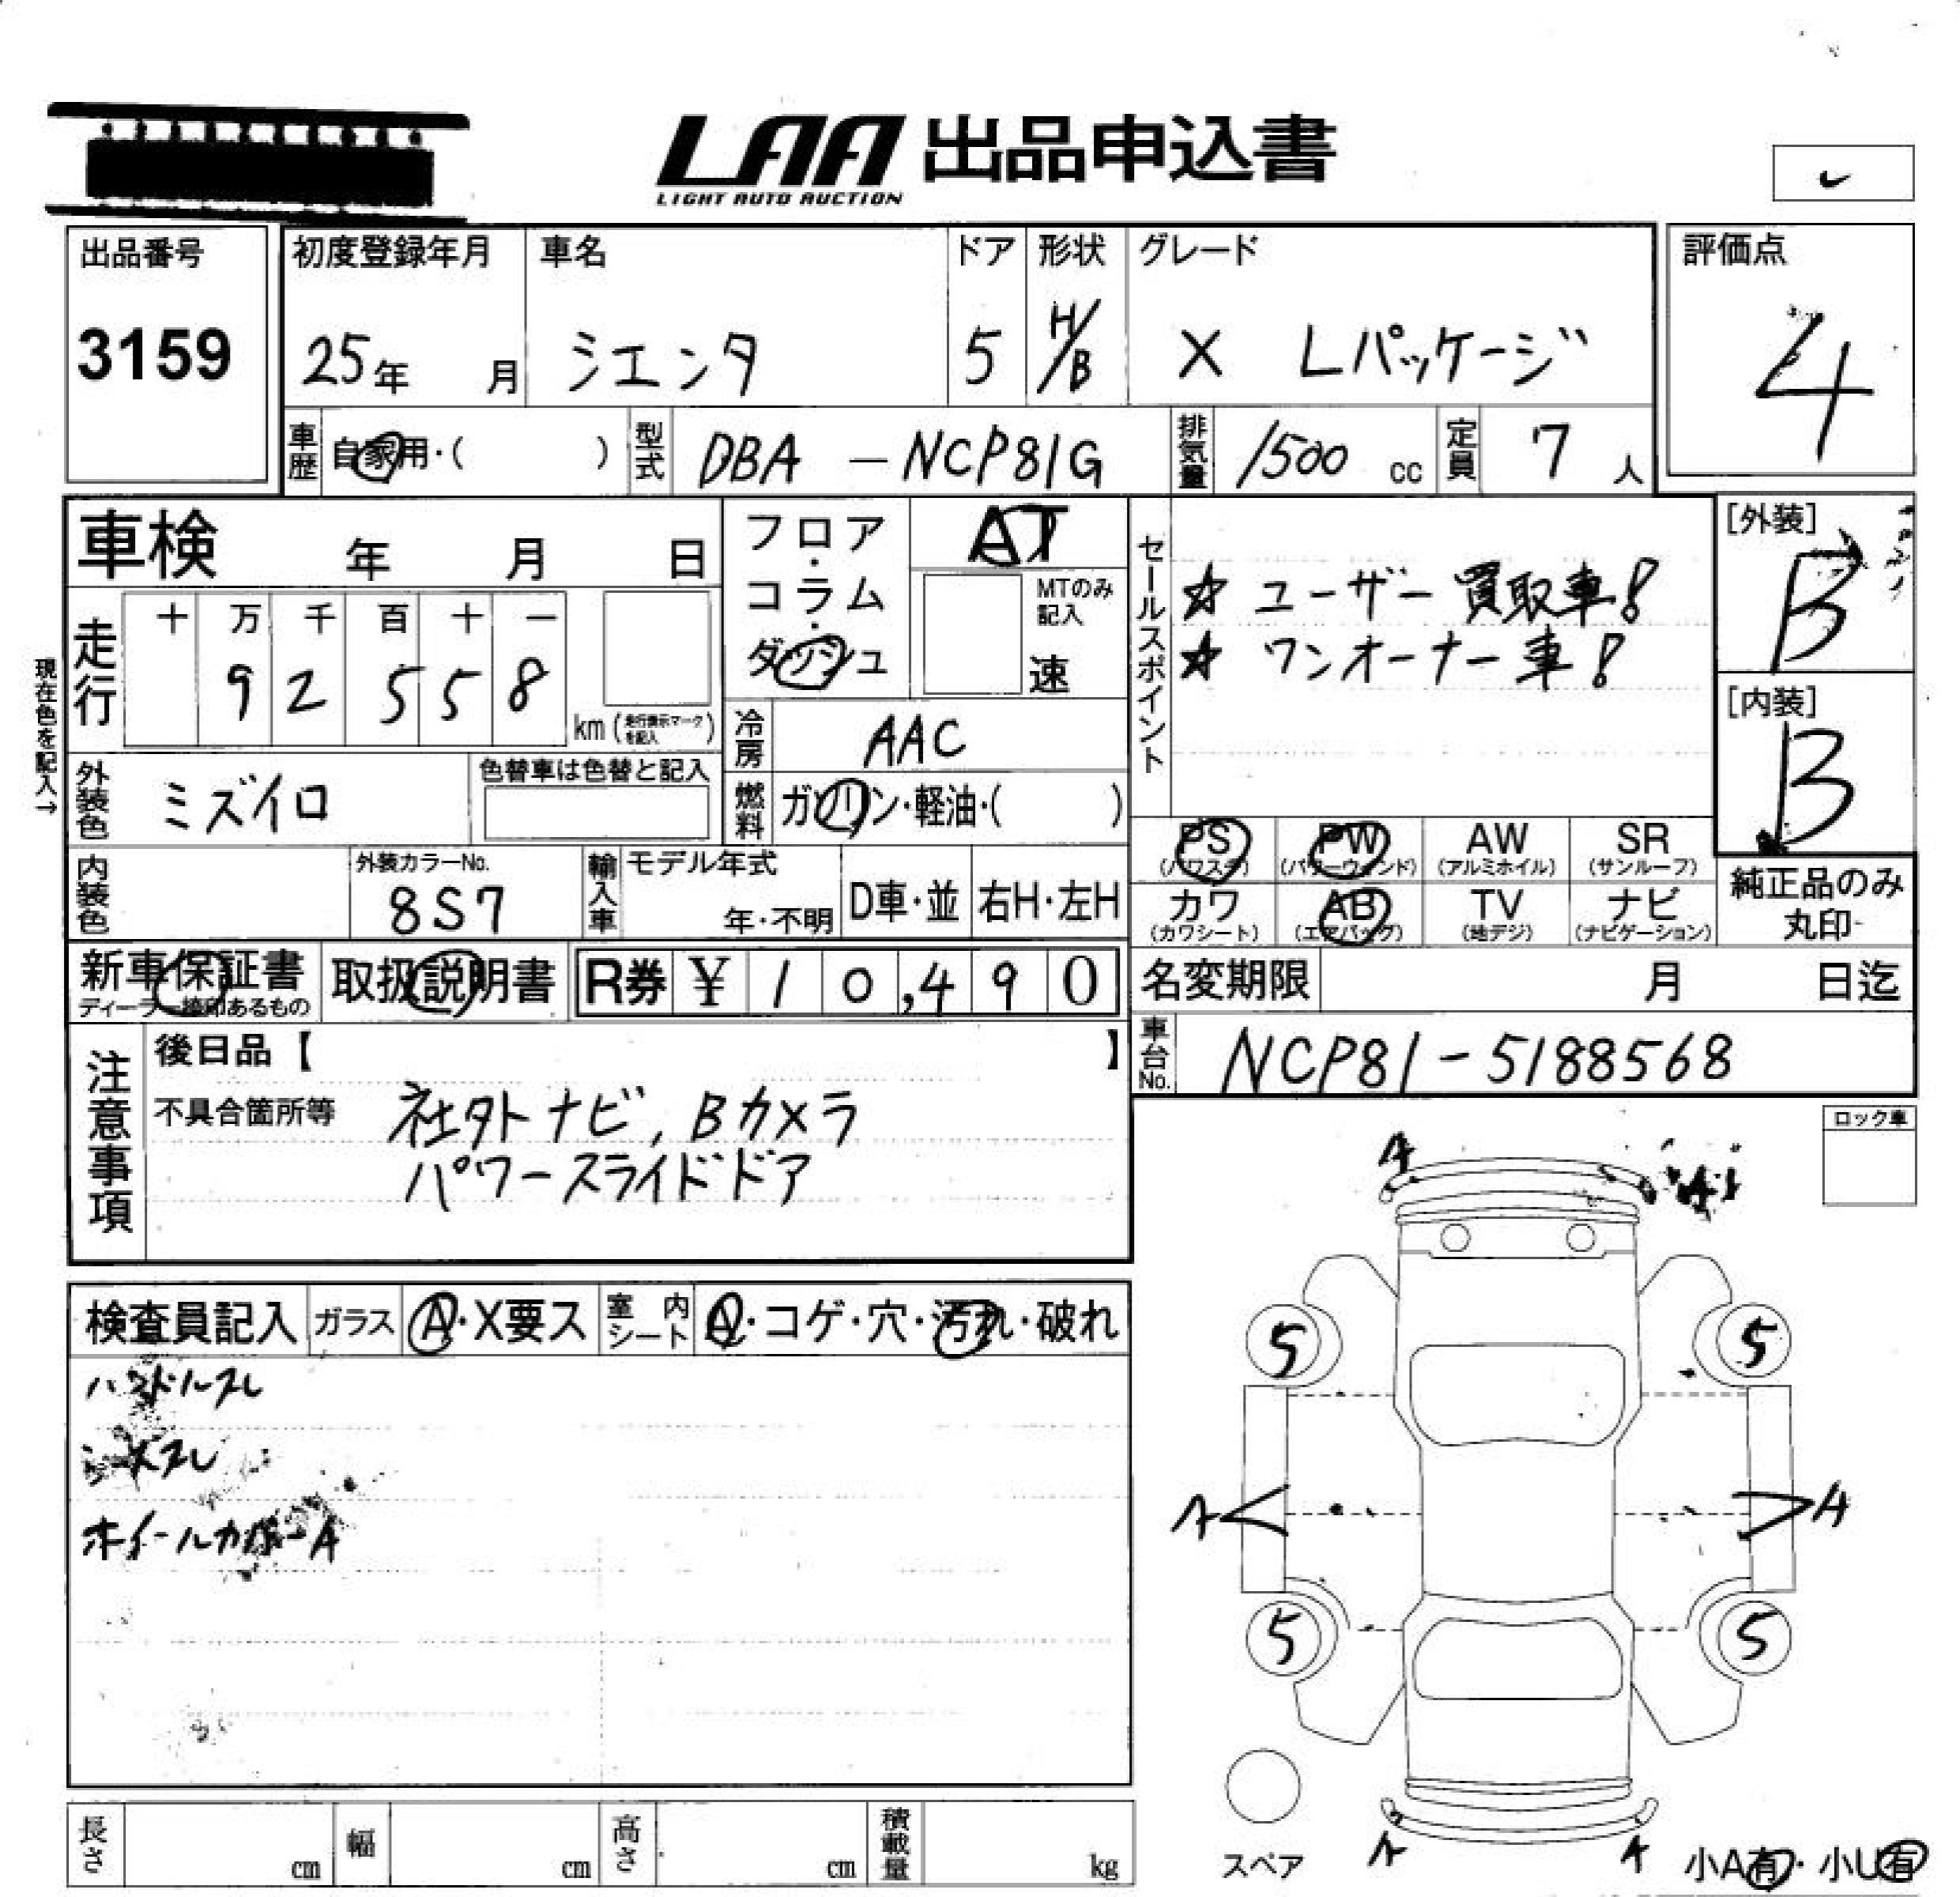 LAA 出品申込書
LIGHT AUTO AUCTION
出品番号
3159
初度登録年月
25年 月
車名
シエンタ
ドア
5
形状
H/B
グレード
X Lパッケージ
評価点
4
車歴 自家用・( )
型式 DBA - NCP81G
排気量 1500 cc
定員 7 人
車検 年 月 日
走行
十 万 千 百 十 一
9 2 5 5 8
km (走行表示マークを記入)
現在色を記入→
フロア・コラム・ダッシュ
AT
MTのみ記入
速
冷房 AAC
燃料 ガソリン・軽油・( )
セールスポイント
☆ ユーザー買取車!
☆ ワンオーナー車!
[外装]
B
[内装]
B
外装色 ミズイロ
色替車は色替と記入
内装色
外装カラーNo.
8S7
輸入車 モデル年式
年・不明
D車・並
右H・左H
PS (パワステ)
PW (パワーウィンド)
AW (アルミホイル)
SR (サンルーフ)
カワ (カワシート)
AB (エアバッグ)
TV (地デジ)
ナビ (ナビゲーション)
純正品のみ
丸印
新車保証書
ディーラー捺印あるもの
取扱説明書
R券 ¥ 10,490
名変期限 月 日迄
車台No. NCP81-5188568
注意事項
後日品【 】
不具合箇所等 社外ナビ, Bカメラ
パワースライドドア
ロック車
検査員記入
ガラス A・X要ス
室内シート A・コゲ・穴・汚れ・破れ
ハンドルスレ
ホイールカバーA
A
A1
5 5
A A
5 5
スペア
A A
小A有・小U有
長さ cm
幅 cm
高さ cm
積載量 kg